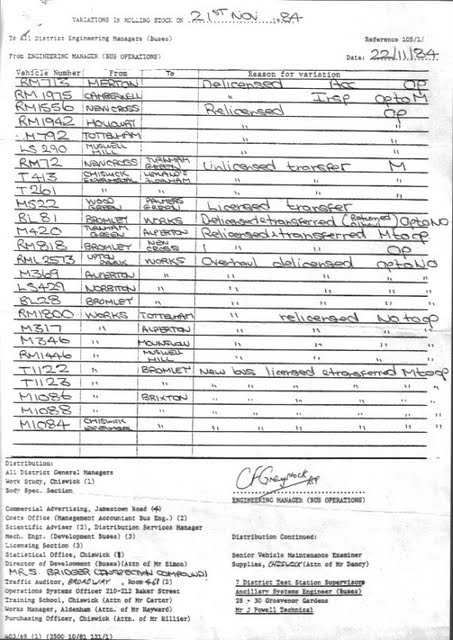 VARIATIONS IN ROLLING STOCK ON 21ST NOV 1984
To All District Engineering Managers (Buses) Reference 105/1/
From ENGINEERING MANAGER (BUS OPERATIONS) Date: 22/11/84
Vehicle Number From To Reason for variation
RM715 MERTON Delicensed Acc OP
RM1975 CAMBERWELL " Insp OptoM
RM1556 NEWCROSS Relicensed OP
RM1942 HOUNSLOW " "
M792 TOTTENHAM " "
LS290 MUSWELL HILL " "
RM72 NEWCROSS TURNHAM GREEN Unlicensed transfer M
T413 CHISWICK " "
T261 " " " "
M522 WOOD GREEN PALMERS GREEN Licensed transfer
BL81 BROMLEY WORKS Delicensed & transferred OptoNO
M420 TURNHAM GREEN ALPERTON Relicensed & transferred Mtoop
RM818 BROMLEY NEW CROSS " OP
RML2573 UPTON PARK WORKS Overhaul delicensed optoNO
M369 ALPERTON " " " "
LS429 NORBITON " " " "
BL28 BROMLEY " " " "
RM1800 WORKS TOTTENHAM " relicensed Notoop
M317 " ALPERTON " " "
M346 " HOUNSLOW " " "
RM1446 " MUSWELL HILL " " "
T1122 BROMLEY New bus licensed & transferred Mtoop
T1123 " " " " " "
M1086 " BRIXTON " " " "
M1088 " " " " " "
M1084 CHISWICK " " " " "
Distribution:
All District General Managers
Work Study, Chiswick (1)
Body Spec. Section
ENGINEERING MANAGER (BUS OPERATIONS)
Commercial Advertising, Jamestown Road (4)
Costs Office (Management Accountant Bus Eng.) (2)
Scientific Adviser (2), Distribution Services Manager
Mech. Engr. (Development Buses) (3) Distribution Continued:
Licensing Section (3)
Statistical Office, Chiswick Senior Vehicle Maintenance Examiner
Director of Development (Buses)(Attn of Mr Simon) Supplies, CHISWICK (Attn of Mr Dancy)
MR S. BRIDGER (INSPECTION COMPOUND)
Traffic Auditor, BROADWAY, Room (2) 7 District Test Station Supervisors
Operations Systems Officer 210-212 Baker Street Ancillary Systems Engineer (Buses)
Training School, Chiswick (Attn of Mr Carter) 28 - 30 Grosvenor Gardens
Works Manager, Aldenham (Attn of Mr Hayward) Mr J Powell Technical
Purchasing Officer, Chiswick (Attn. of Mr Hillier)
(2500 10/81 131/1)